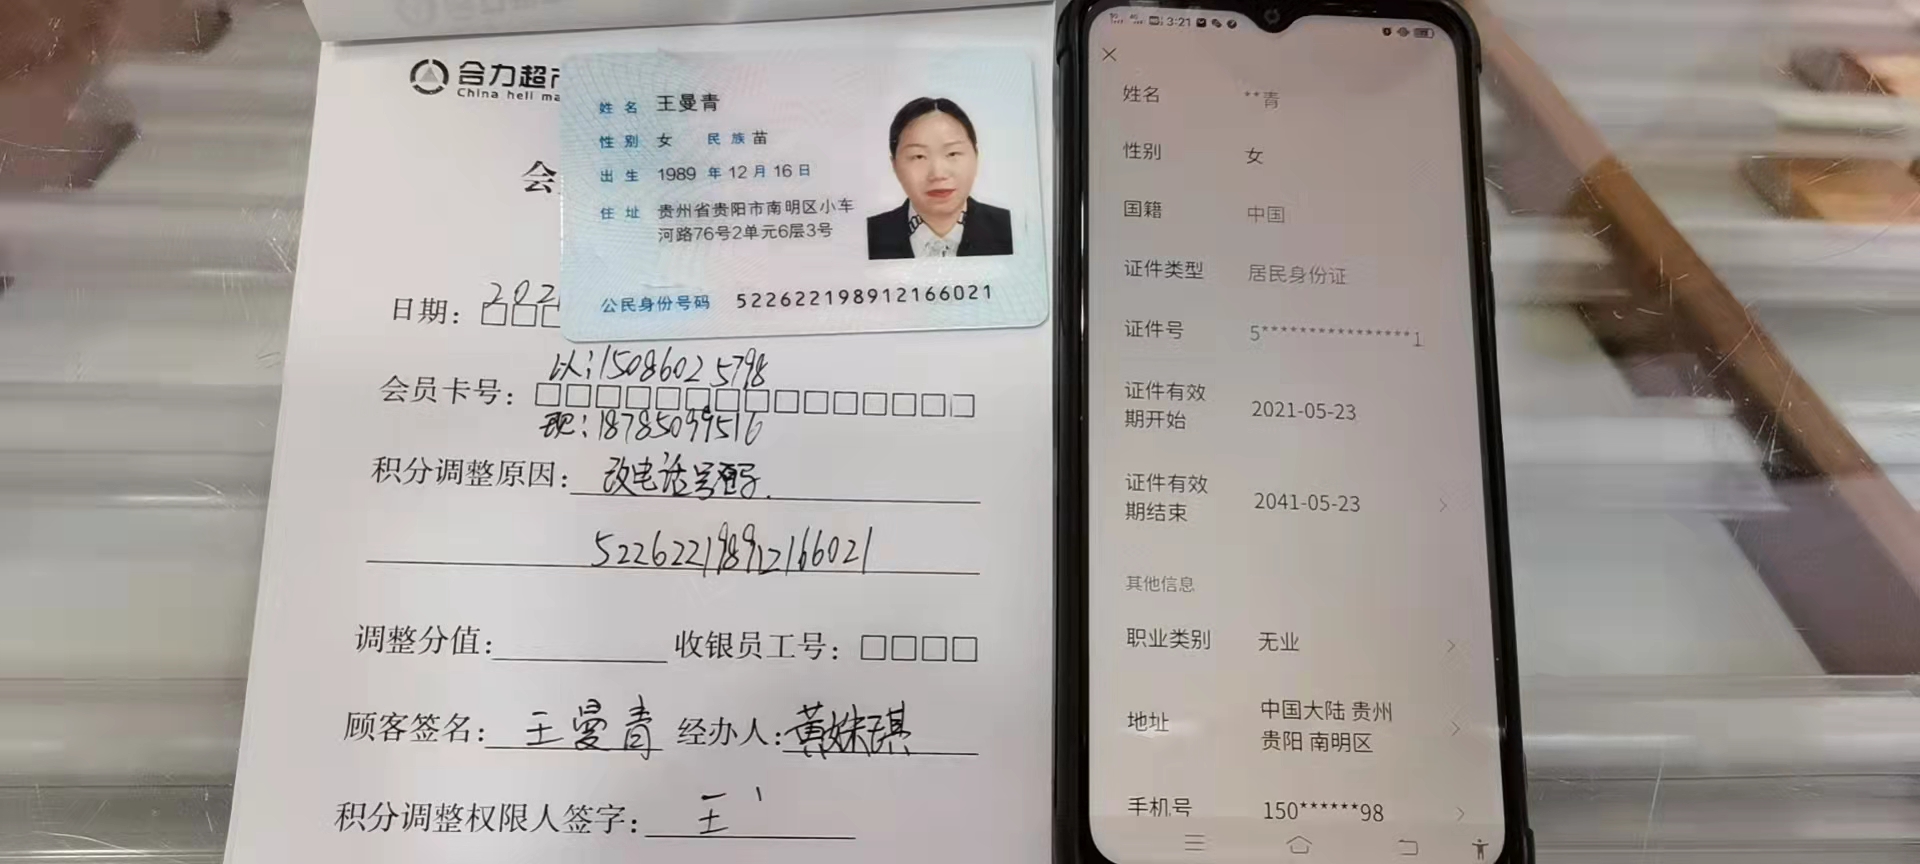 合力超
China heli ma
会
日期：202
姓名 王曼青
性别 女 民族 苗
出生 1989 年 12 月 16 日
住址 贵州省贵阳市南明区小车
河路76号2单元6层3号
公民身份号码 522622198912166021
以：15086025798
会员卡号：
现：18785039516
积分调整原因：改电话号码.
522622198912166021
调整分值： 收银员工号：
顾客签名：王曼青 经办人：黄姝琪
积分调整权限人签字：王
3:21
姓名 **青
性别 女
国籍 中国
证件类型 居民身份证
证件号 5****************1
证件有效
期开始 2021-05-23
证件有效
期结束 2041-05-23
其他信息
职业类别 无业
地址 中国大陆 贵州
贵阳 南明区
手机号 150******98